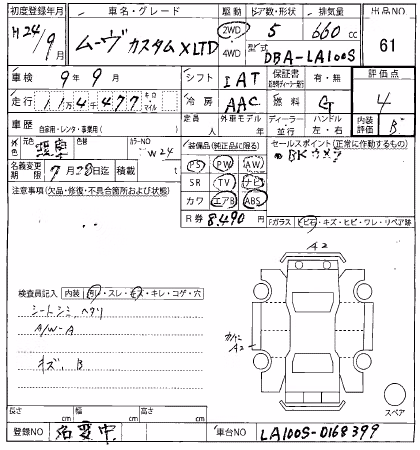 初度登録年月 車名・グレード 駆動 ドア数・形状 排気量 出品NO
H24/9月 ムーヴカスタムXLTD 2WD 4WD 5 660cc 61
型式 DBA-LA100S
車検 9年9月 シフト IAT 保証書 有・無 評価点
走行 11万4千477 キロ・マイル 冷房 AAC 燃料 G 4
車歴 自家用・レンタ・事業用( ) 定員 人 外車モデル 年 ディーラー・並行 ハンドル 左・右 内装評価 B
外色 元色 色替 カラーNO W24
装備品(純正品に限る) セールスポイント(正常に作動するもの)
PS PW AW BKカメラ
名義変更期限 7月28日迄 積載 t SR TV ナビ
注意事項(欠品・修復・不具合箇所および状態) カワ エアB ABS
R券 8,490円 Fガラス ヒビ石・キズ・ヒビ・ワレ・リペア跡
A2
検査員記入 内装 汚レ・スレ・キズ・キレ・コゲ・穴
シートシミ ヘタリ
A/W-A
A2
キズ、B
スペア
長さ cm 幅 cm 高さ cm
登録NO 名変中 車台NO LA100S-0168399